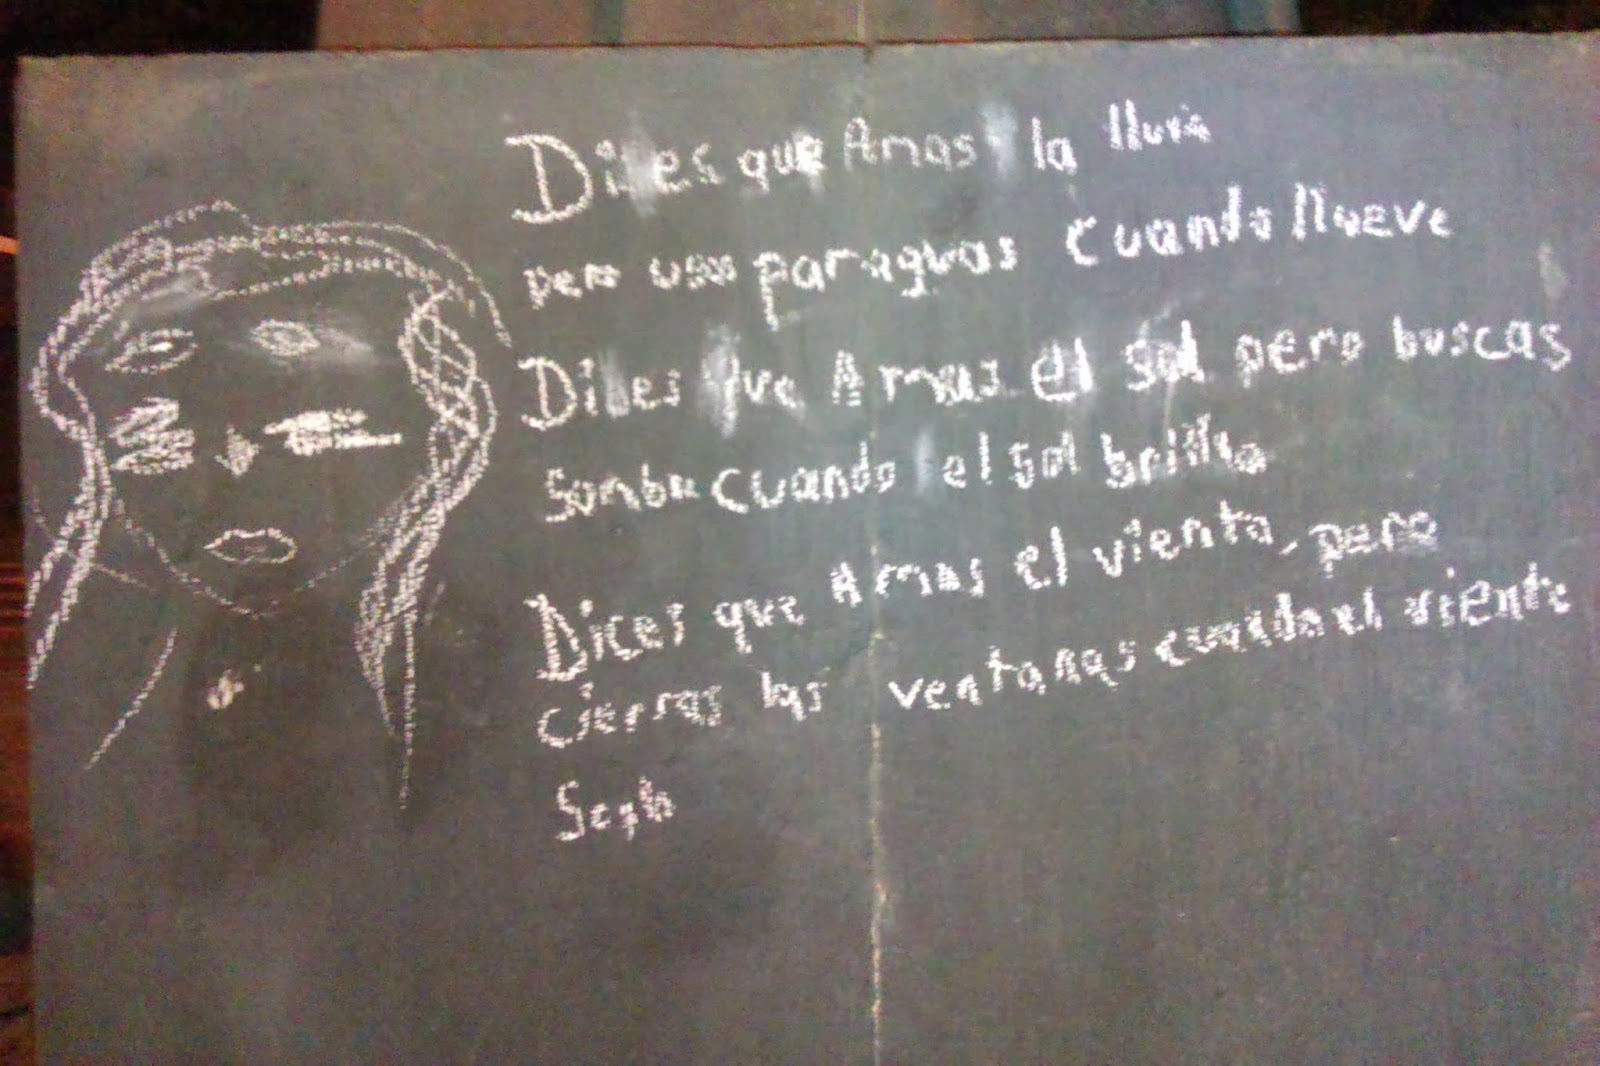 Dices que Amas la lluvia
pero usas paraguas cuando llueve
Dices que Amas el sol pero buscas
sombra cuando el sol brilla
Dices que Amas el viento, pero
cierras las ventanas cuando el viento